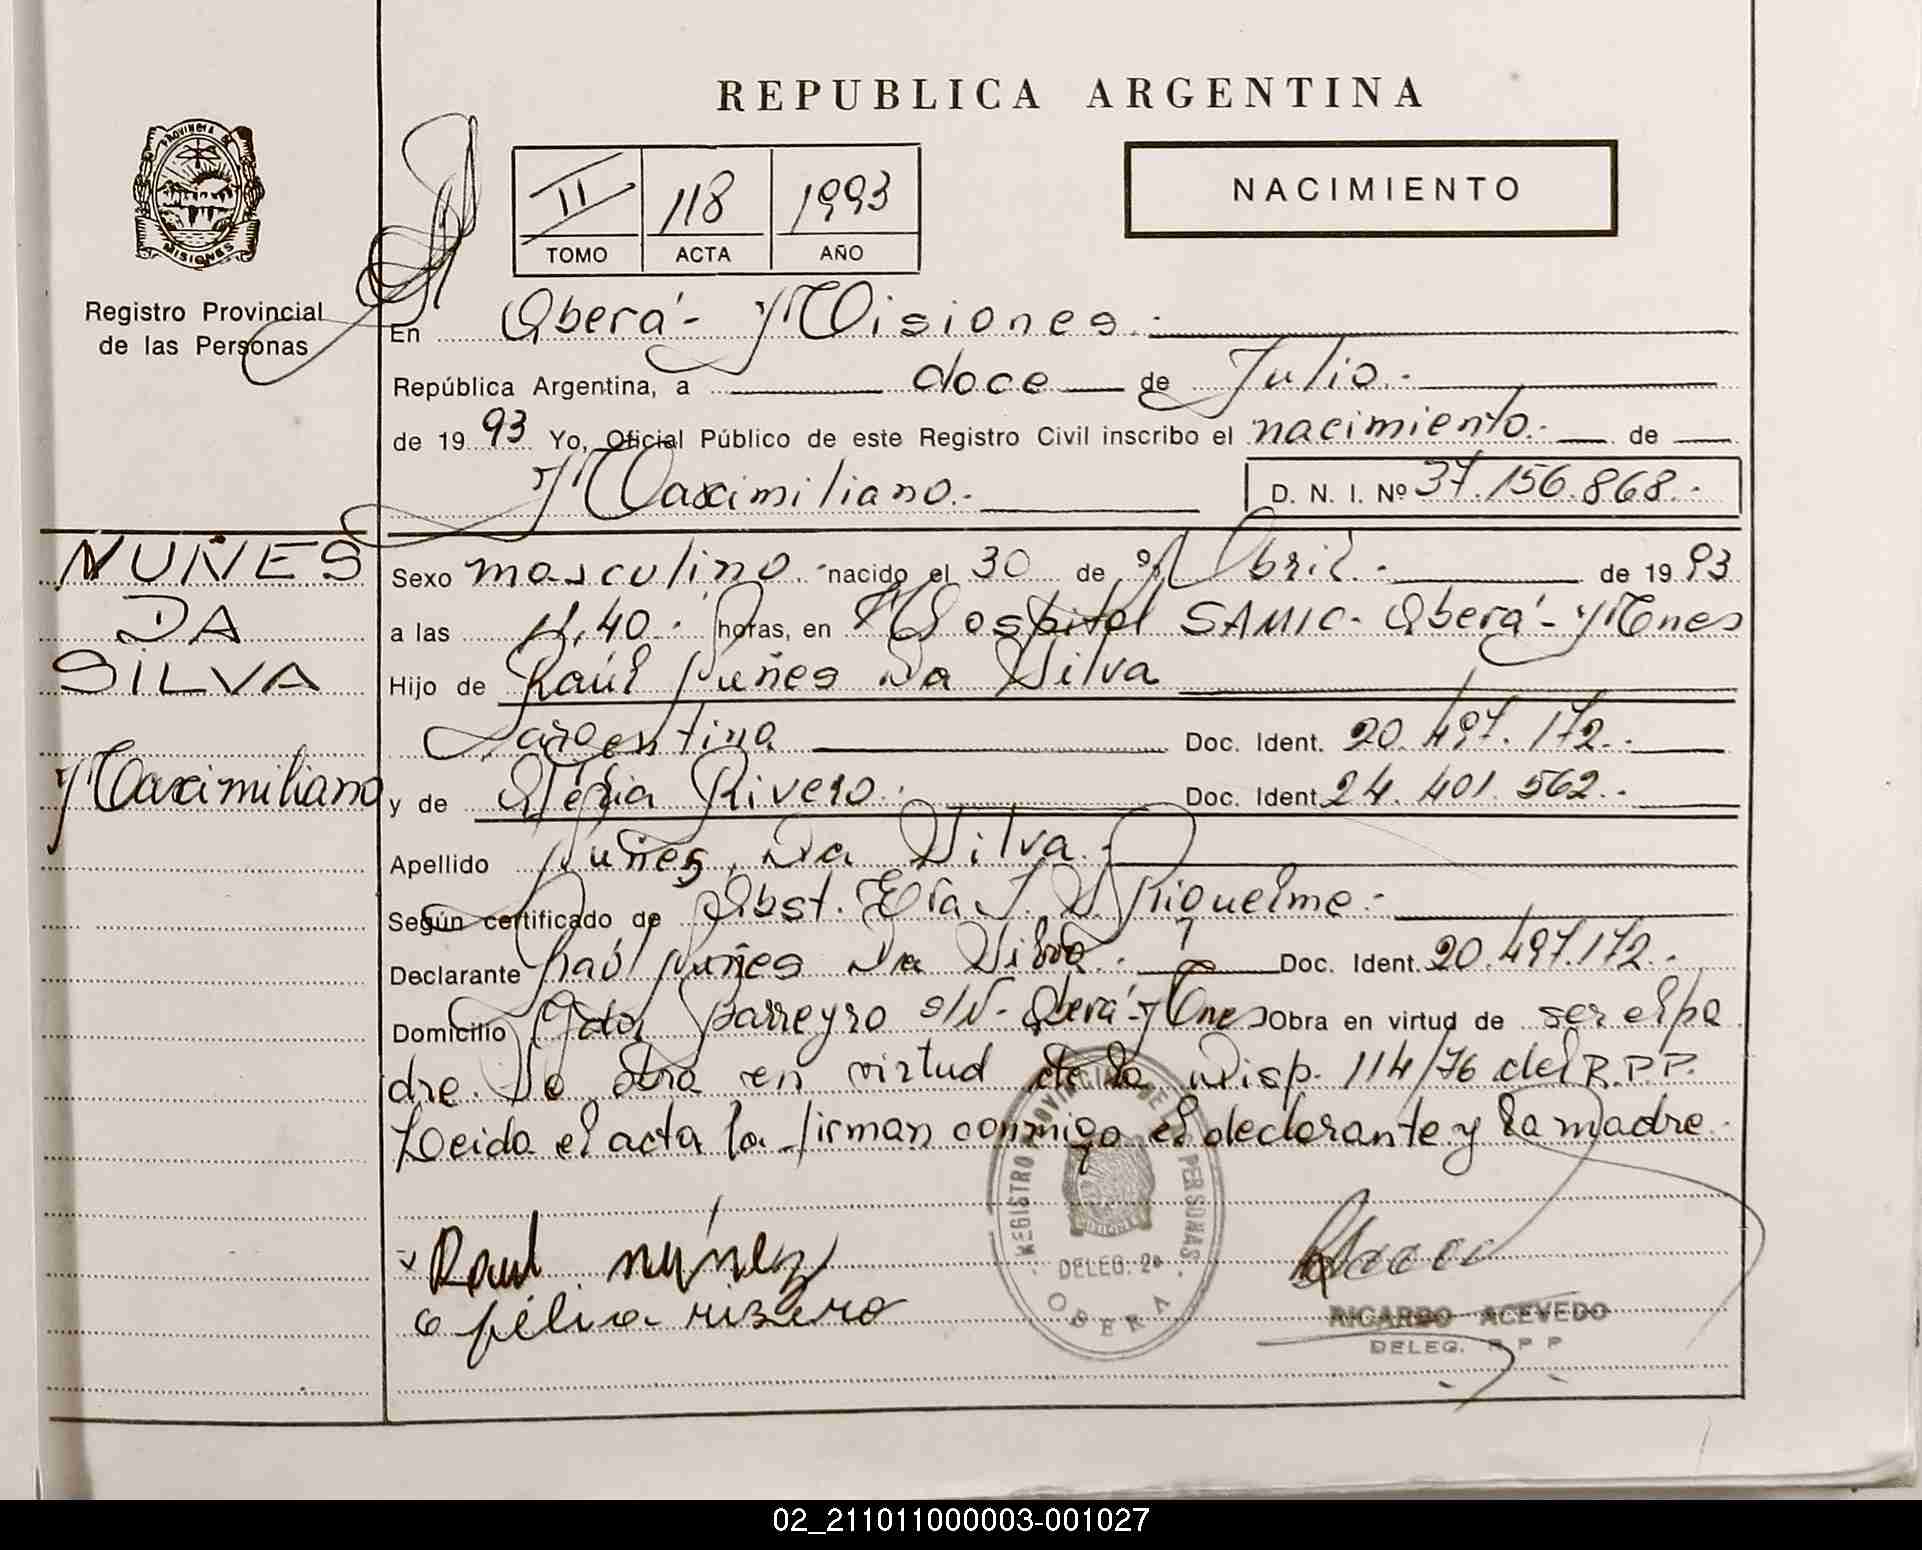 REPUBLICA ARGENTINA
PROVINCIA DE
MISIONES
Registro Provincial
de las Personas
II 118 1993
TOMO ACTA AÑO
NACIMIENTO
En Oberá - Misiones.-
República Argentina, a doce de Julio.-
de 1993 Yo, Oficial Público de este Registro Civil inscribo el nacimiento.- de
Maximiliano.- D. N. I. Nº 37.156.868.-
NUÑES
DA
SILVA
Maximiliano
Sexo masculino. nacido el 30 de Abril.- de 1993
a las 11,40.- horas, en Hospital SAMIC- Oberá - Mnes
Hijo de Raúl Nuñes Da Silva
Argentina Doc. Ident. 20.497.172.-
y de Rivero.- Doc. Ident. 24.401.562.-
Apellido Nuñes Da Silva.-
Según certificado de Obst. S. Riquelme.-
Declarante Raúl Nuñes Da Silva.- Doc. Ident. 20.497.172.-
Domicilio Gdor Barreyro s/N- Oberá - Mnes Obra en virtud de ser el pa
dre. Se obra en virtud de la Disp. 114/76 del R.P.P.
Leida el acta la firman conmigo el declarante y la madre.-
REGISTRO PROVINCIAL DE PERSONAS
DELEG. 2a
OBERA
Raul Nuñez
rivero
RICARDO ACEVEDO
DELEG. R P P
02_211011000003-001027